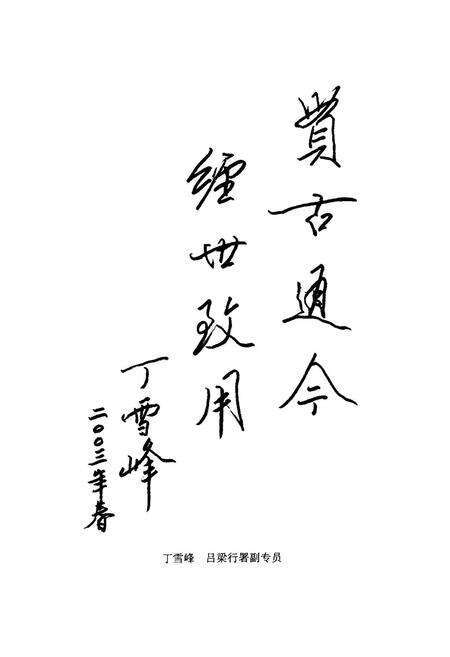 貫古通今
經世致用
丁雪峰
二〇〇三年春
丁雪峰　吕梁行署副专员